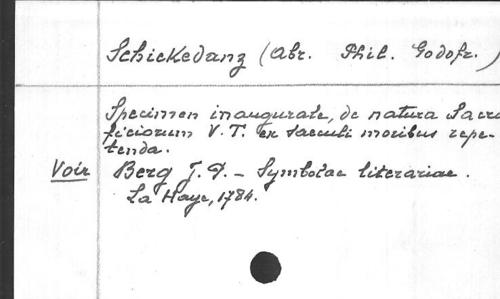 Schickedanz (Abr. Phil. Godofr.)
Specimen inaugurale, de natura Sacri
ficiorum V. T. ex saeculi moribus repe-
tenda.
Voir Berg J. P. - Symbolae literariae.
La Haye, 1784.